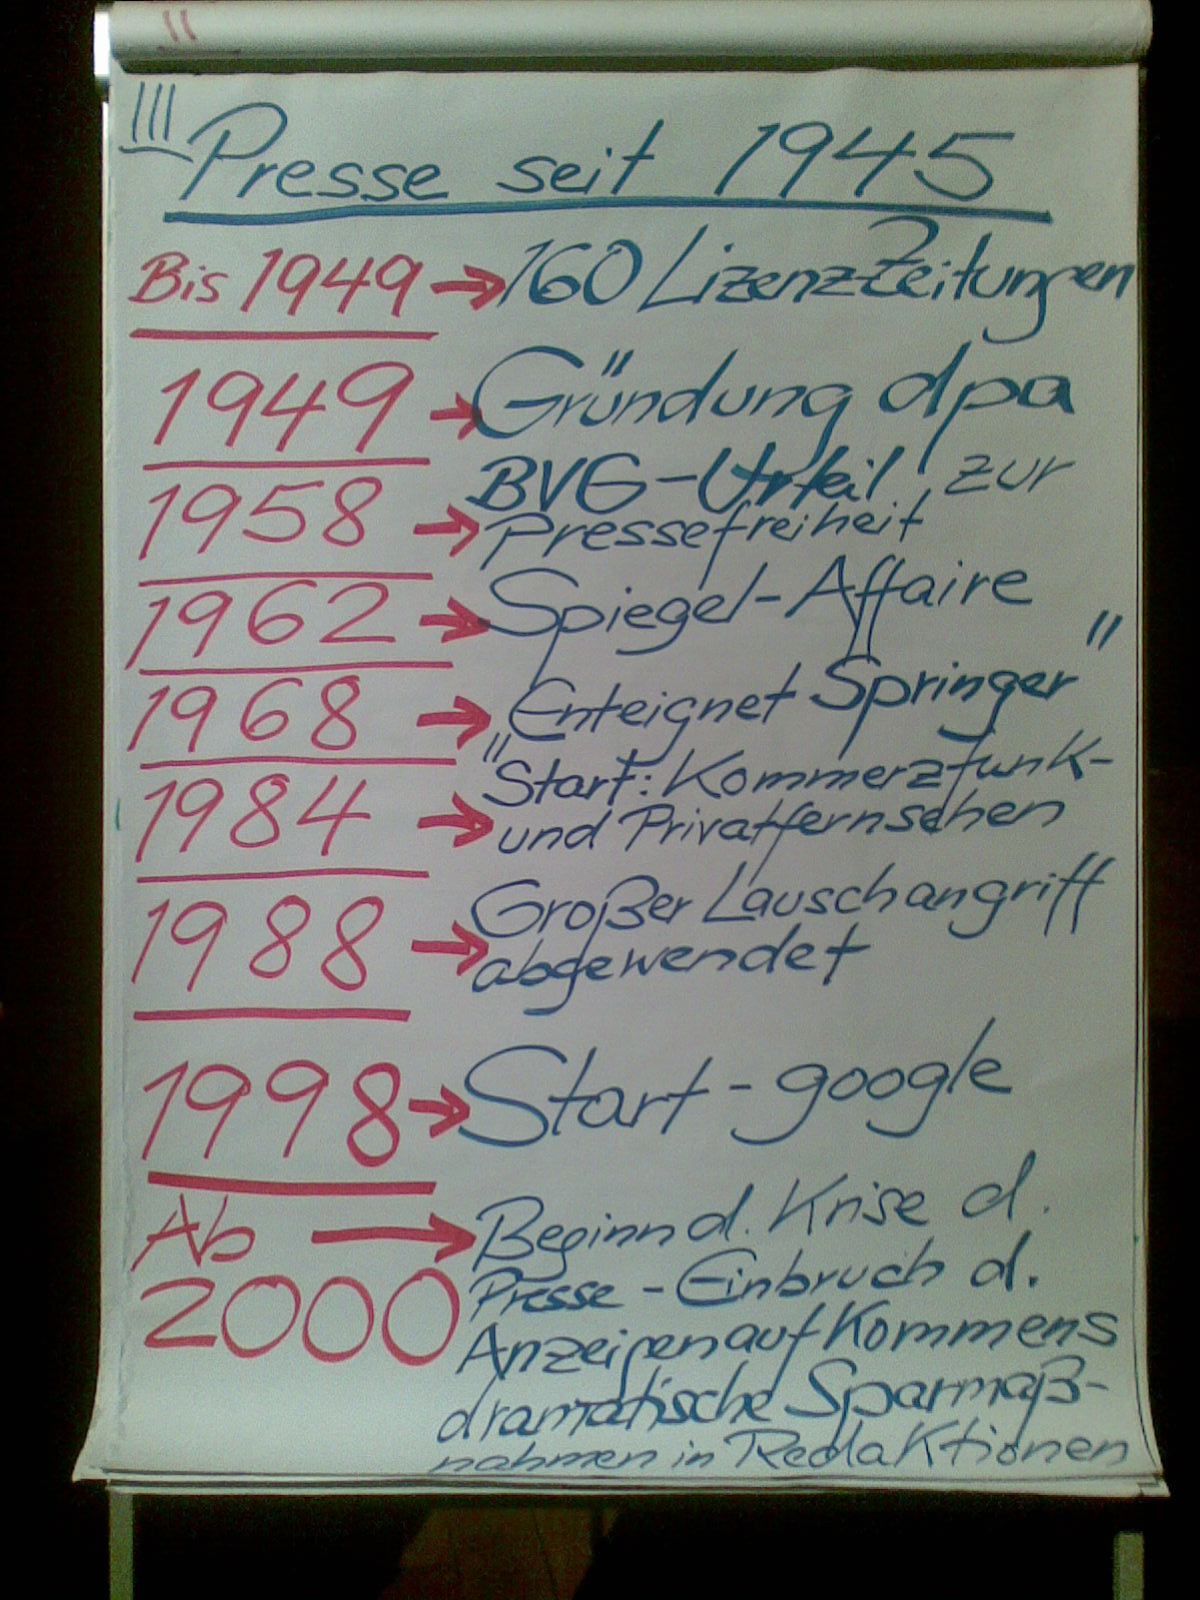 II
III
Presse seit 1945
Bis 1949 → 160 Lizenz-Zeitungen
1949 → Gründung dpa
1958 → BVG-Urteil zur
Pressefreiheit
1962 → Spiegel-Affaire
1968 → "Enteignet Springer"
1984 → Start: Kommerzfunk-
und Privatfernsehen
1988 → Großer Lauschangriff
abgewendet
1998 → Start-google
Ab → Beginn d. Krise d.
2000 Presse - Einbruch d.
Anzeigenaufkommens
dramatische Sparmaß-
nahmen in Redaktionen